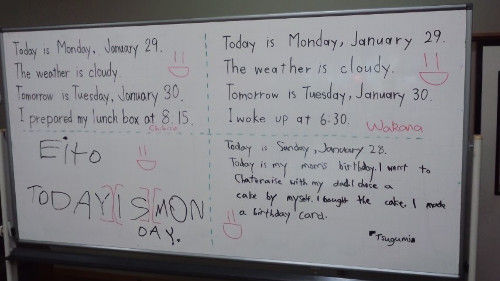 Today is Monday, January 29.
The weather is cloudy.
Tomorrow is Tuesday, January 30.
I prepared my lunch box at 8.15.
Today is Monday, January 29.
The weather is cloudy.
Tomorrow is Tuesday, January 30.
I woke up at 6.30.
Wakana
Eito
TODAY IS MON
DAY.
Today is Sunday, January 28.
Today is my mom's birthday. I went to
with my dad. I
cake by myself. I bought the cake. I made
a birthday card.
Tsugumi